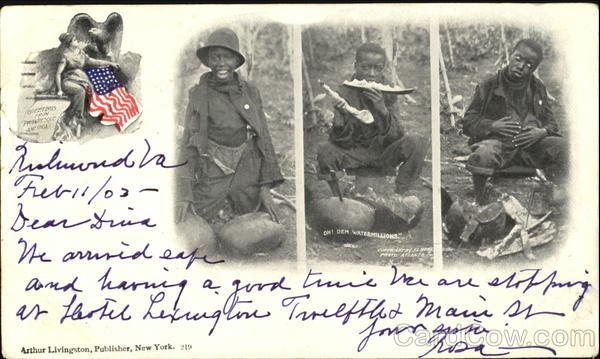 GREETINGS
FROM
PICTURESQUE
AMERICA
Richmond Va
Feb 11/02-
Dear Dina
We arrived safe
and having a good time We are stopping
at Hotel Lexington Twelfth & Main St
Your
Rosa
OH! DEM WATERMILLIONS"
COPYRIGHTED
PHOTO ATLANTA
Arthur Livingston, Publisher, New York. 219
CardCow.com